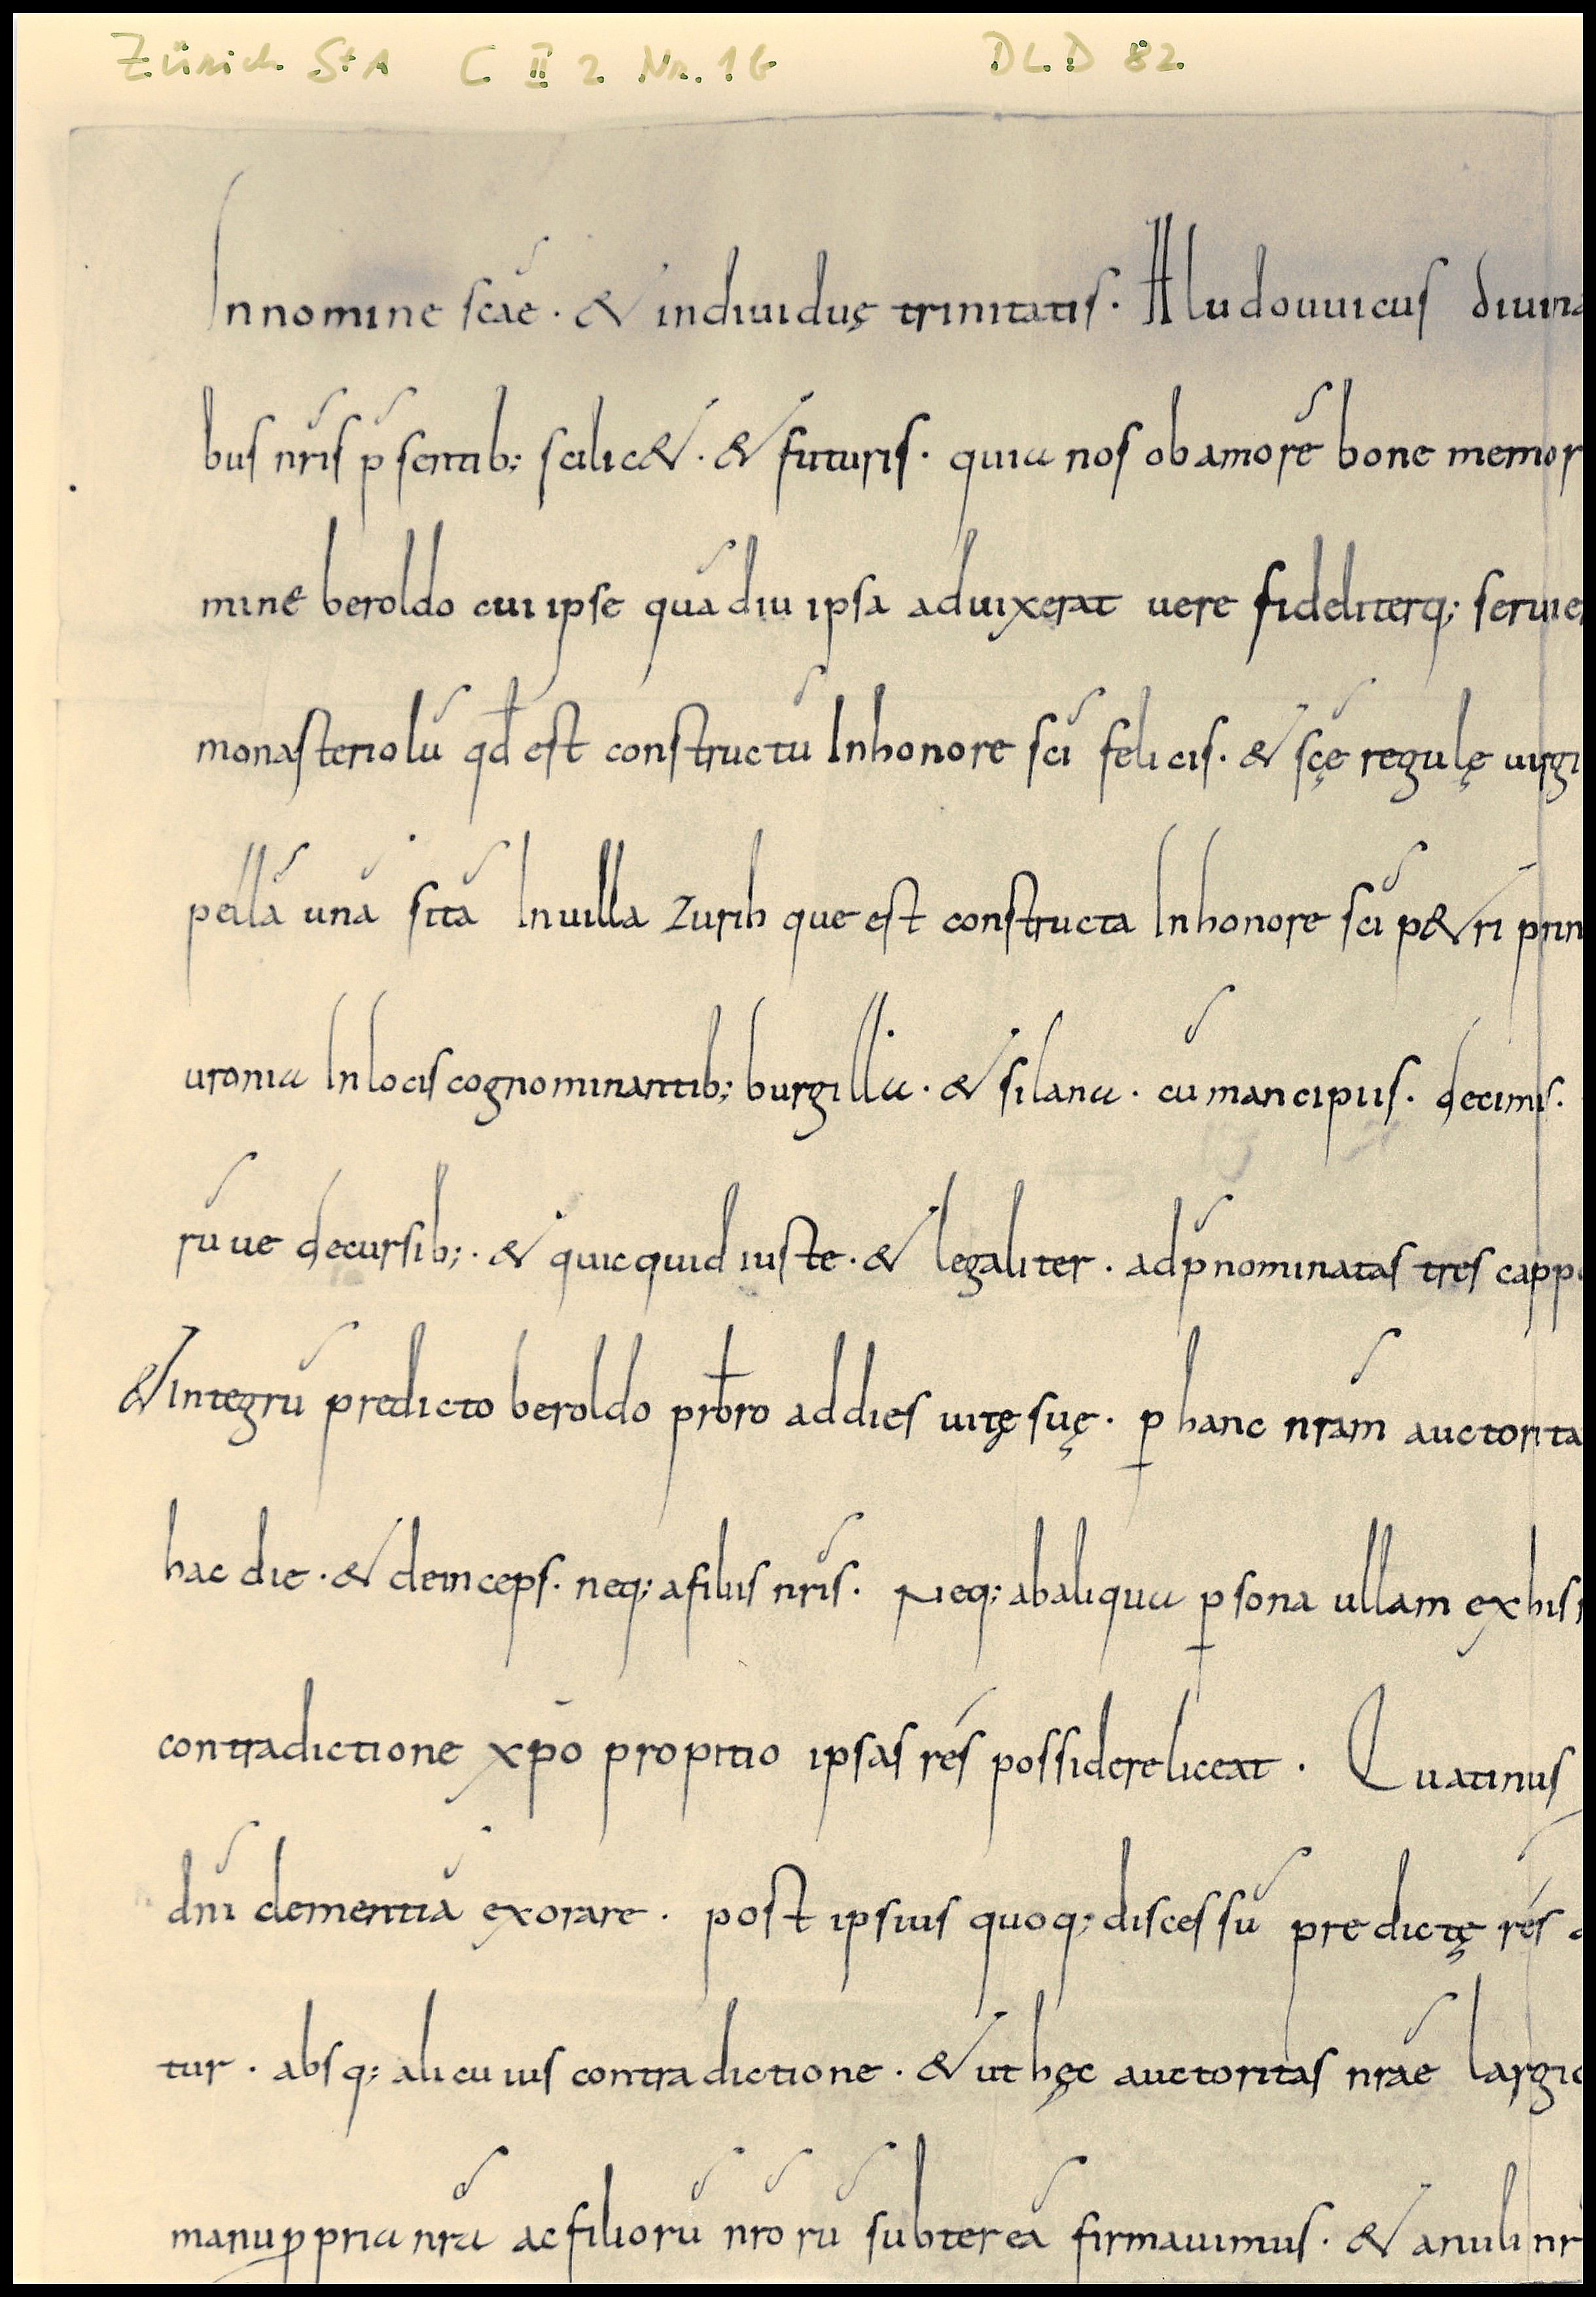 Zürich StA C II 2 Nr. 16 DLD 82
In nomine scae · & indiuiduę trinitatis · Hludouuicus diuina
bus nr̄is p̄sentib; scilic& · & futuris · quia nos ob amorē bone memor
minē beroldo cui ipse quādiu ipsa aduixerat uere fideliterq; seruie
monasteriolū qđ est constructū In honore sc̄i felicis · & sc̄ę regulę uirgi
pellā unā sitā In uilla Zurih que est constructa In honore sc̄i p&ri prin
uronia In locis cognominantib; burgilla · & silana · cū mancipiis · decimis ·
rū ue decursib; · & quicquid iuste · & legaliter · ad p̄nominatas tres capp
& integrū predicto beroldo prb̄ro ad dies uitę suę · ꝑ hanc nrām auctorita
hac die · & deinceps · neq; a filiis nr̄is · Neq; ab aliqua ꝑsona ullam ex his
contradictione xp̄o propitio ipsas rés possidere liceat · Quatinus
dn̄i clementiā exorare · post ipsius quoq; discessū predictę rés
tur · absq; alicuius contradictione · & ut hęc auctoritas nrāe largi
manu ꝓpria nrā ac filiorū nrōrū subter eā firmauimus · & anuli nr